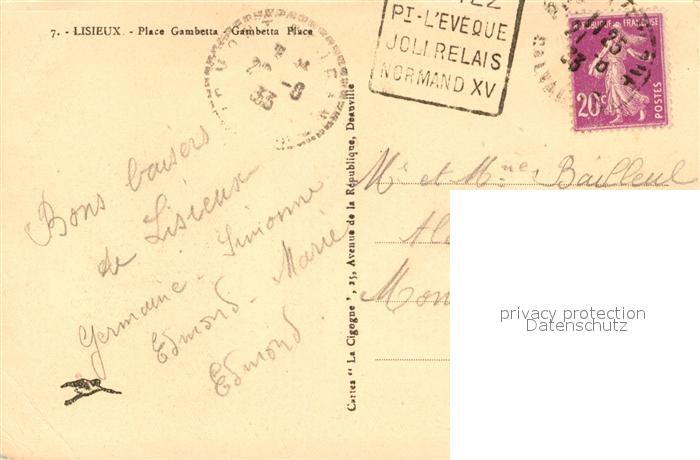 7. - LISIEUX. - Place Gambetta - Gambetta Place
PT-L'EVÊQUE
JOLI RELAIS
NORMAND XV
RÉPUBLIQUE FRANÇAISE
20c
POSTES
Bons baisers
de Lisieux
Germaine - Simonne
Edmond - Marie
Edmond.
Cartes "La Cigogne", 25, Avenue de la République, Deauville
Mr et Mme Bailleul
Mon
privacy protection
Datenschutz